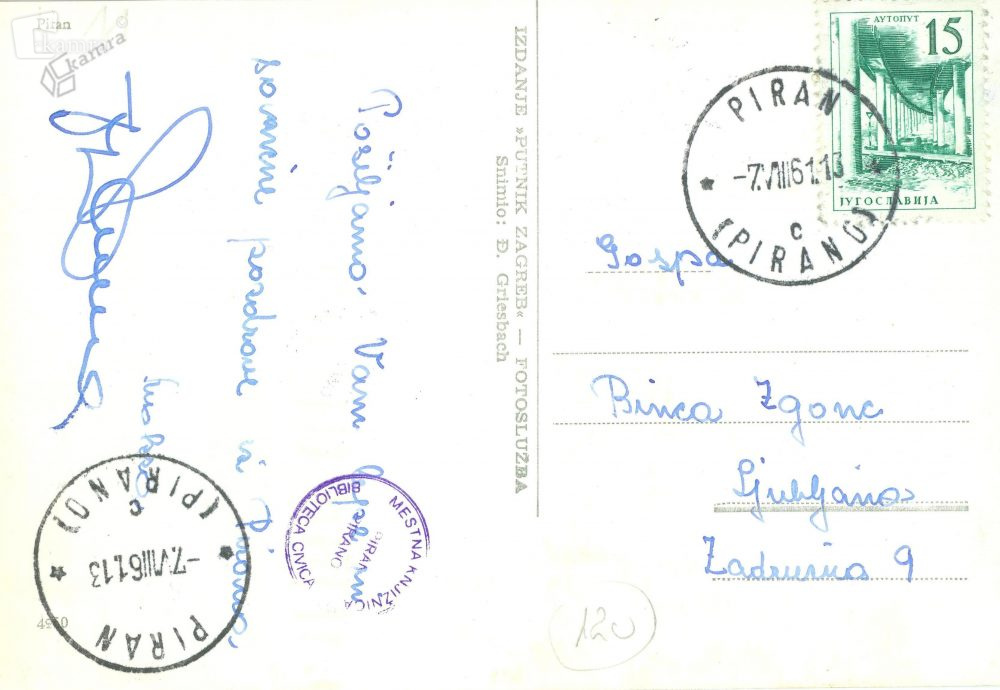 Piran
kamra
Pošiljamo Vam lepe in
sončne pozdrave iz Pirana,
IZDANJE »PUTNIK ZAGREB« — FOTOSLUŽBA
Snimio: Đ. Griesbach
АУТОПУТ
15
ЈУГОСЛАВИЈА
PIRAN
-7.VIII61.13
c
(PIRANO)
Gospa
Binca Zgonc
Ljubljana
Zadružna 9
MESTNA KNJIŽNICA
PIRAN
PIRANO
BIBLIOTECA CIVICA
PIRAN
-7.VIII61.13
c
(PIRANO)
120